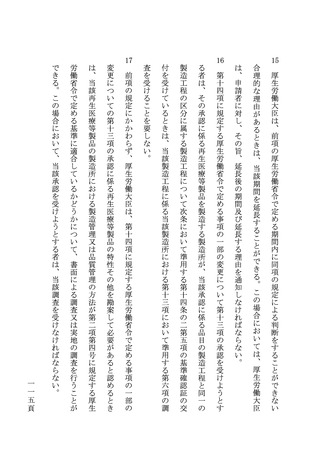 15　厚生労働大臣は、前項の厚生労働省令で定める期間内に同項の規定による判断をすることができない
合理的な理由があるときは、当該期間を延長することができる。この場合においては、厚生労働大臣
は、申請者に対し、その旨、延長後の期間及び延長する理由を通知しなければならない。
16　第十四項に規定する厚生労働省令で定める事項の一部の変更について第十三項の承認を受けようとす
る者は、その承認に係る再生医療等製品を製造する製造所が、当該承認に係る品目の製造工程と同一の
製造工程の区分に属する製造工程について次条において準用する第十四条の二第五項の基準確認証の交
付を受けているときは、当該製造工程に係る当該製造所における第十三項において準用する第六項の調
査を受けることを要しない。
17　前項の規定にかかわらず、厚生労働大臣は、第十四項に規定する厚生労働省令で定める事項の一部の
変更についての第十三項の承認に係る再生医療等製品の特性その他を勘案して必要があると認めるとき
は、当該再生医療等製品の製造所における製造管理又は品質管理の方法が第二項第四号に規定する厚生
労働省令で定める基準に適合しているかどうかについて、書面による調査又は実地の調査を行うことが
できる。この場合において、当該承認を受けようとする者は、当該調査を受けなければならない。
一一五頁